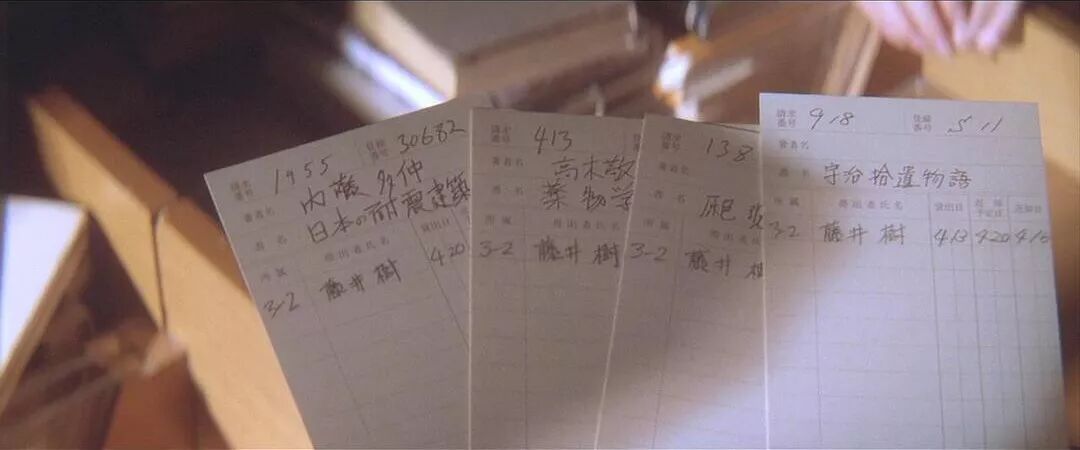 請求番号 1955 登録番号 30682
著者名 内藤多仲
書名 日本の耐震建築
所属 貸出者氏名 貸出日
3-2 藤井樹 420
請求番号 413
著者名 高木敬
書名 薬物学
所属 貸出者氏名
3-2 藤井樹
請求番号 138
著者名
書名
所属 貸出者氏名
3-2 藤井樹
請求番号 918 登録番号 511
著者名
書名 宇治拾遺物語
所属 貸出者氏名 貸出日 返却予定日 返却日
3-2 藤井樹 413 420